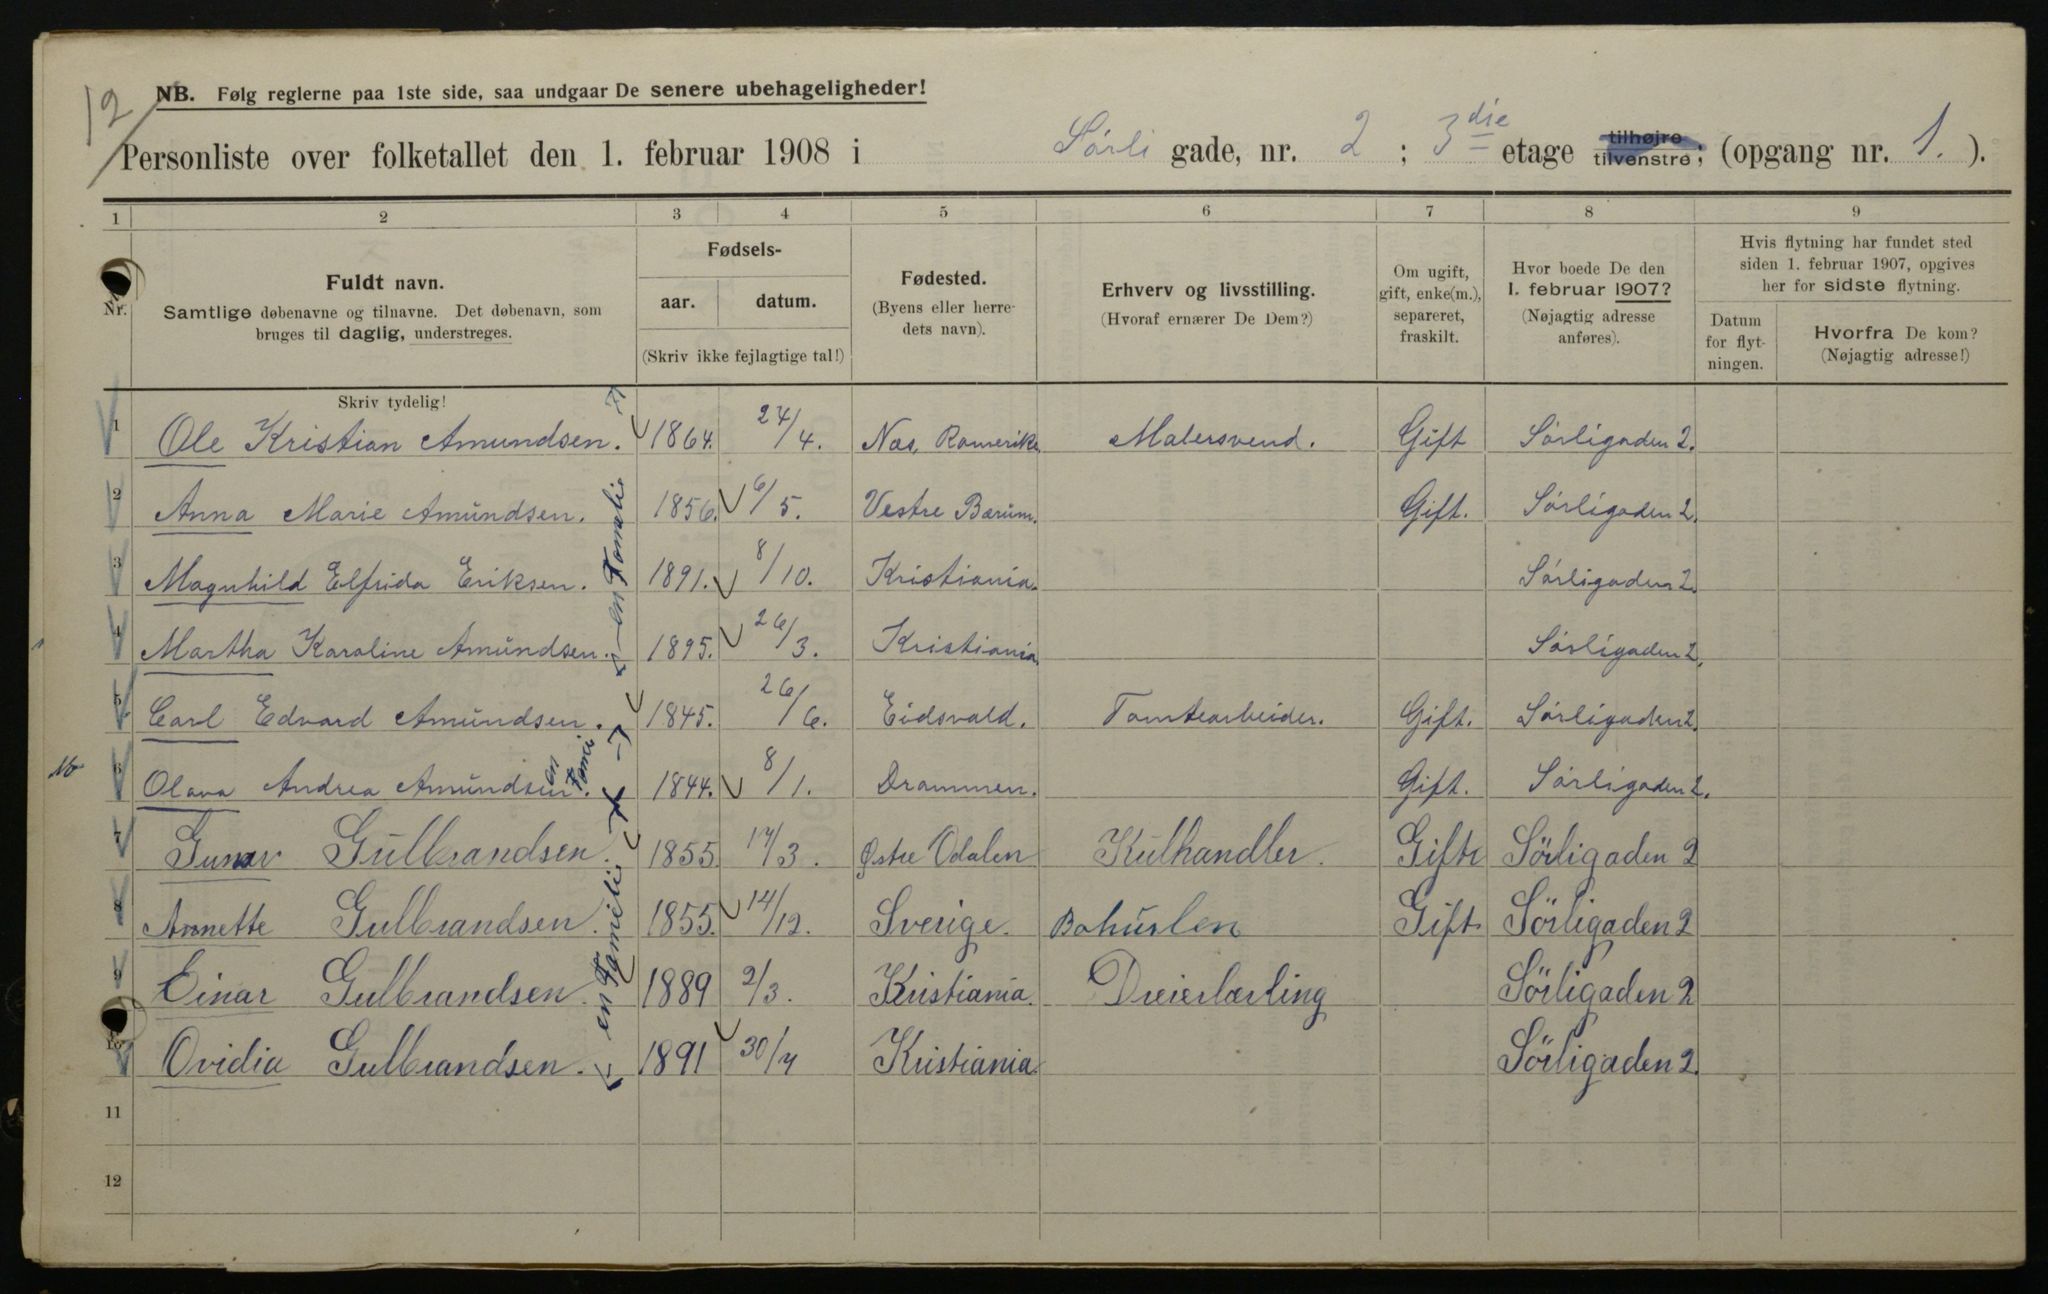 12
NB. Følg reglerne paa 1ste side, saa undgaar De senere ubehageligheder!
Personliste over folketallet den 1. februar 1908 i Sørli gade, nr. 2 ; 3die etage tilhøjre tilvenstre; (opgang nr. 1. ).
1 2 3 4 5 6 7 8 9
Nr.
Fuldt navn.
Samtlige døbenavne og tilnavne. Det døbenavn, som
bruges til daglig, understreges.
Skriv tydelig!
Fødsels-
aar. datum.
(Skriv ikke fejlagtige tal!)
Fødested.
(Byens eller herre-
dets navn).
Erhverv og livsstilling.
(Hvoraf ernærer De Dem?)
Om ugift,
gift, enke(m.),
separeret,
fraskilt.
Hvor boede De den
1. februar 1907?
(Nøjagtig adresse
anføres).
Hvis flytning har fundet sted
siden 1. februar 1907, opgives
her for sidste flytning.
Datum
for flyt-
ningen.
Hvorfra De kom?
(Nøjagtig adresse!)
1 Ole Kristian Amundsen. 1864. 24/4. Nas, Romerike. Malersvend. Gift Sørligaden 2.
2 Anna Marie Amundsen. 1856. 6/5. Vestre Bærum. Gift. Sørligaden 2.
3 Magnhild Elfrida Eriksen. 1891. 8/10. Kristiania. Sørligaden 2.
4 Martha Karoline Amundsen. 1895. 26/3. Kristiania. Sørligaden 2.
5 Carl Edvard Amundsen. 1845. 26/6. Eidsvald. Tomtearbeider. Gift. Sørligaden 2.
6 Olava Andrea Amundsen. 1844. 8/1. Drammen. Gift. Sørligaden 2.
7 Gunar Gulbrandsen. 1855. 17/3. Østre Odalen Kulhandler. Gift Sørligaden 2
8 Annette Gulbrandsen. 1855. 14/12. Sverige. Bohuslen Gift Sørligaden 2
9 Einar Gulbrandsen. 1889 2/3. Kristiania. Dreierlærling Sørligaden 2
10 Ovidia Gulbrandsen. 1891 30/7 Kristiania. Sørligaden 2.
11
12
en Familie
en Famil
en Familie